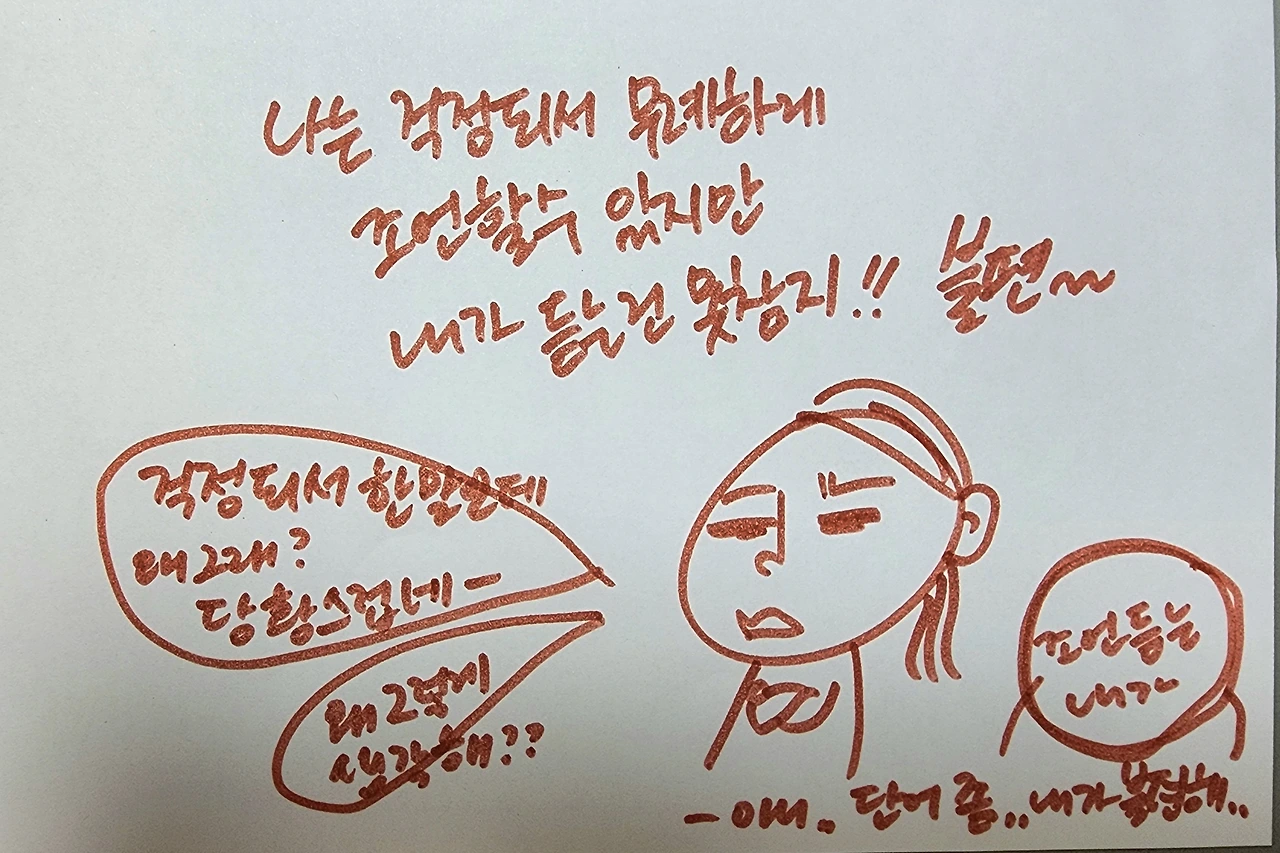 나는 걱정되서 무례하게
조언할수 있지만
내가 듣는건 못참지!! 불편~
걱정되서 한말인데
왜그래?
당황스럽네-
왜 그렇게
생각해??
조언듣는
내가
단어 좀..내가 불편해..